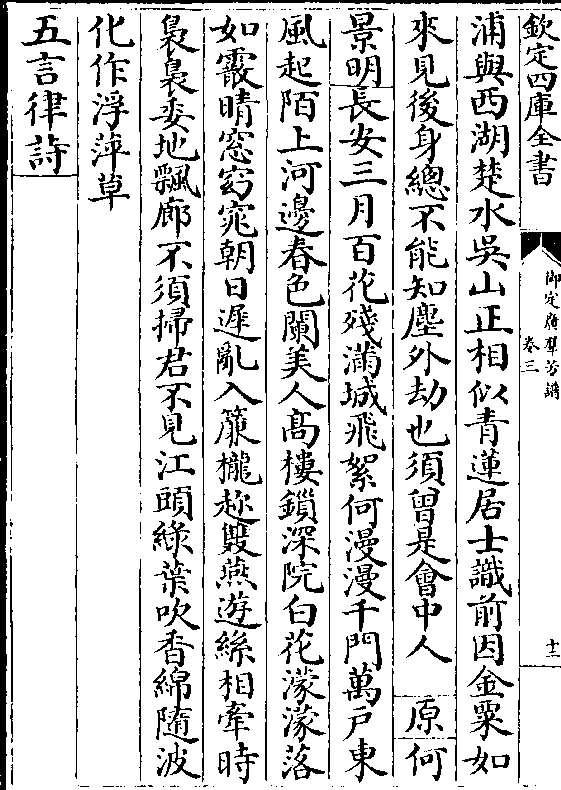 欽定四庫全書
御定廣羣芳譜
卷三
十三
浦與西湖楚水吳山正相似青蓮居士識前因金粟如
來見後身總不能知塵外劫也須曾是會中人 原 何
景明長安三月百花殘滿城飛絮何漫漫千門萬戸東
風起陌上河邊春色闌美人髙樓鎖深院白花濛濛落
如霰晴窓窈窕朝日遲亂入簾櫳趂毀燕遊絲相牽時
裊裊委地飄廊不須掃君不見江頭綠葉吹香綿隨波
化作浮萍草
五言律詩